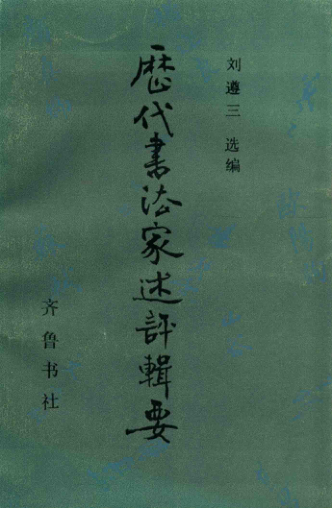 刘遵三 选编
歷代书法家述評輯要
齐鲁书社